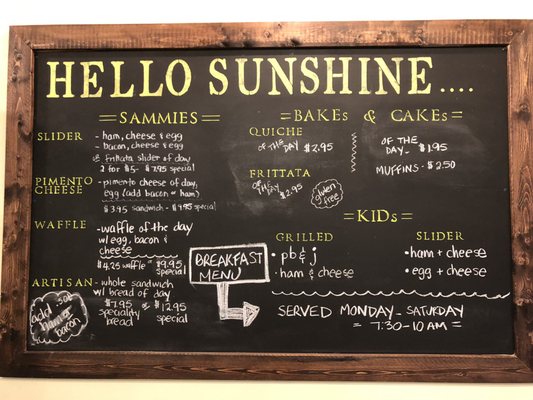 HELLO SUNSHINE....
=SAMMIES=
SLIDER
- ham, cheese & egg
- bacon, cheese & egg
or Frittata slider of day
2 for $5 - $7.95 special
PIMENTO CHEESE
- pimento cheese of day,
egg (add bacon or ham)
$3.95 sandwich - $9.95 special
WAFFLE
- waffle of the day
w/ egg, bacon &
cheese
$4.25 waffle - $9.95 special
ARTISAN
- whole sandwich
w/ bread of day
$7.95 or $12.95
speciality special
bread
add
ham or
bacon
BREAKFAST
MENU
=BAKEs & CAKEs=
QUICHE
OF THE DAY $2.95
FRITTATA
OF THE DAY $2.95
gluten
free
OF THE
DAY - $1.95
MUFFINS - $2.50
=KIDs=
GRILLED
• pb & j
• ham & cheese
SLIDER
• ham + cheese
• egg + cheese
SERVED MONDAY - SATURDAY
= 7:30-10 AM =